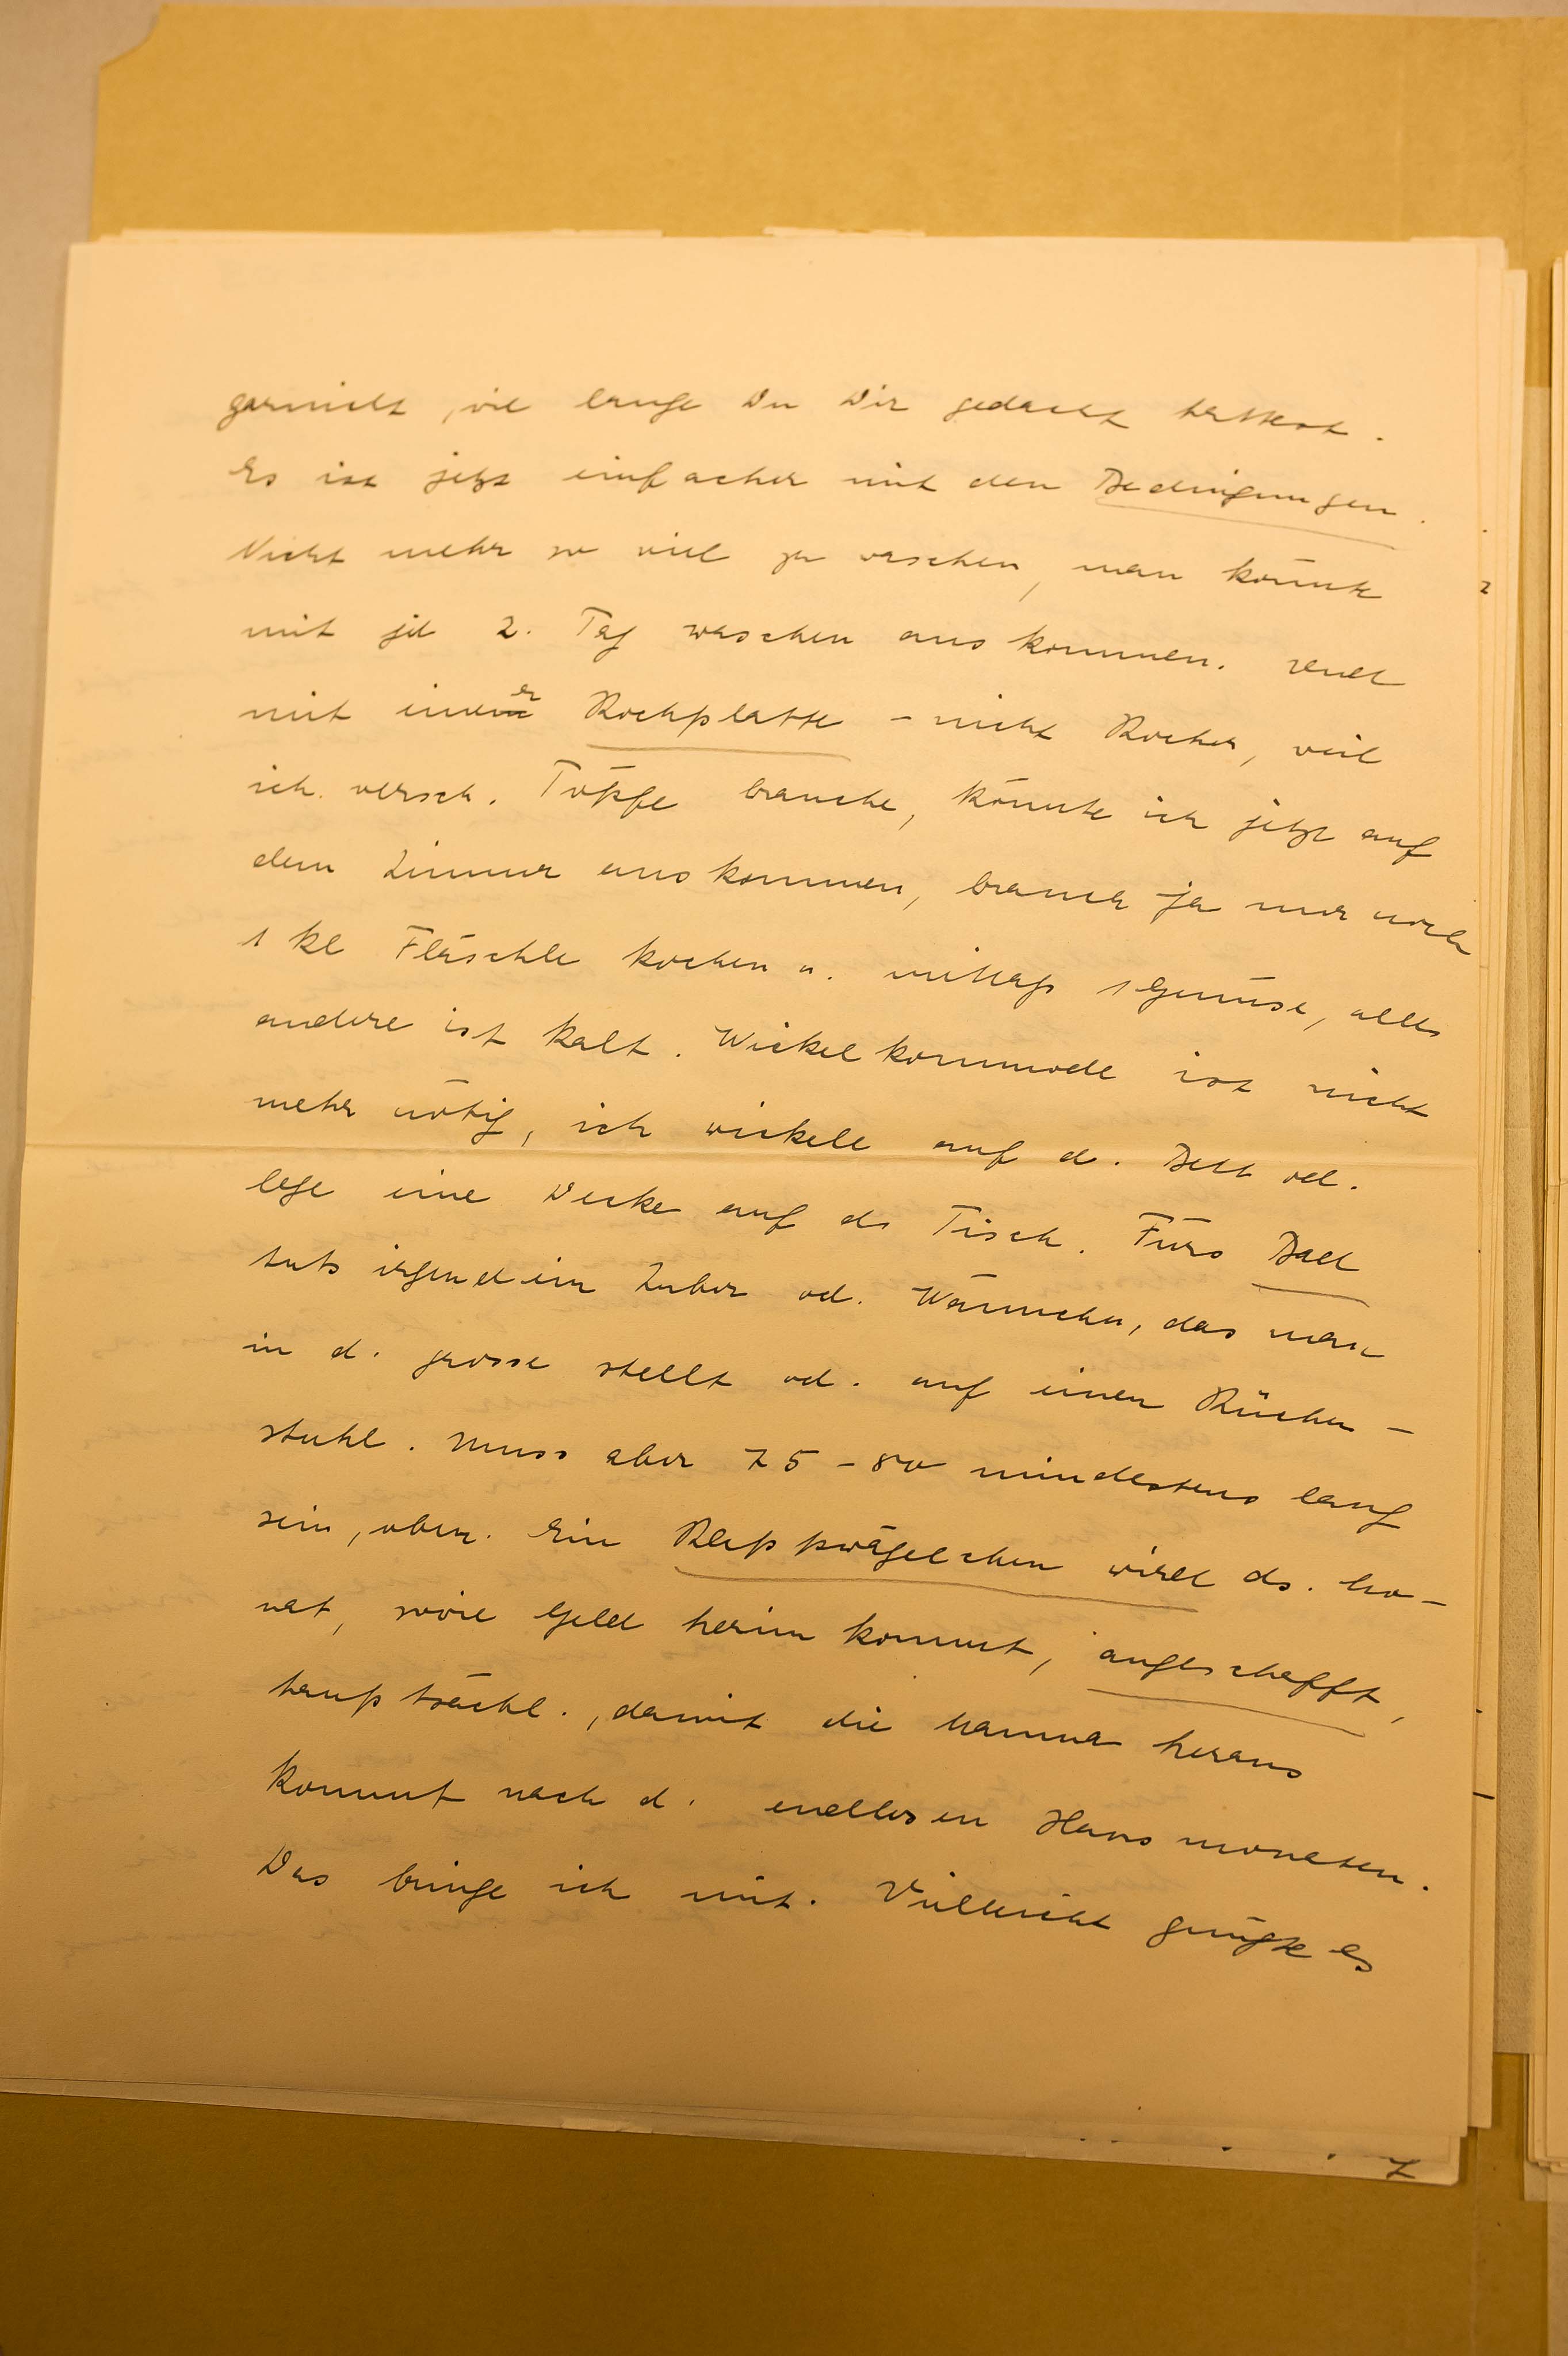 garnicht, wie lange Du Dir gedacht hattest.
Es ist jetzt einfacher mit den Bedingungen.
Nicht mehr so viel zu waschen, man könnte
mit jed 2. Tag waschen auskommen. Und
mit einer Kochplatte - nicht Kocher, weil
ich versch. Töpfe brauche, könnte ich jetzt auf
dem Zimmer auskommen, brauch ja nur noch
1 kl Fläschle kochen u. mittags 1 Gemüse, alles
andere ist kalt. Wickelkommode ist nicht
mehr nötig, ich wickele auf d. Bett od.
lege eine Decke auf d. Tisch. Fürs Bad
tuts irgendein Zuber od. Wännchen, das man
in d. grosse stellt od. auf einen Küchen-
stuhl. Muss aber 75-80 mindestens lang
sein, oben. Ein Klappwägelchen wird ds. Mo-
nat, sowie Geld herein kommt, angeschafft,
hauptsächl., damit die Mamma heraus
kommt nach d. endlosen Hausmonaten.
Das bringe ich mit. Vielleicht genügte es